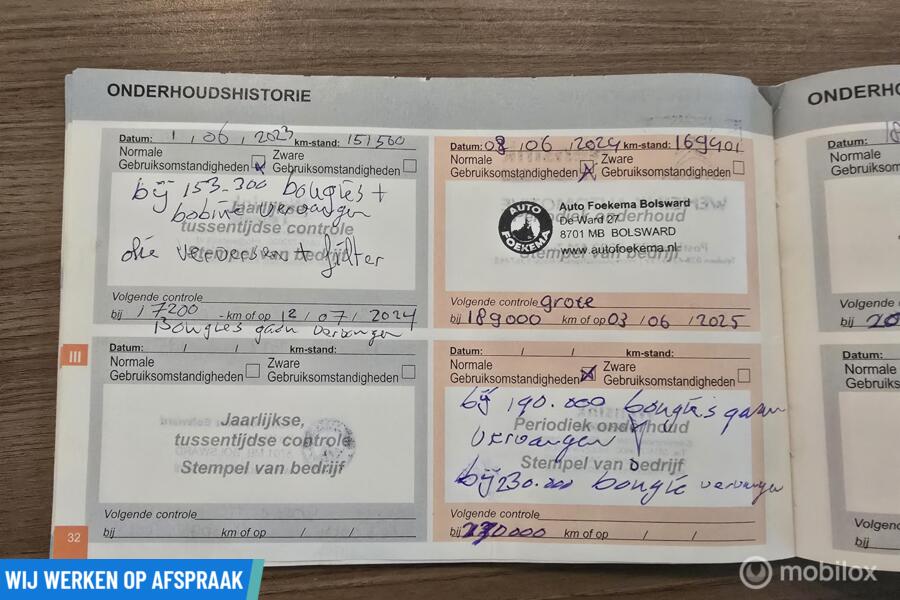 ONDERHOUDSHISTORIE
ONDERH
Datum: 1 / 06 / 2023 km-stand: 151500
Normale Gebruiksomstandigheden
Zware Gebruiksomstandigheden
bij 153.200 bougies +
bobine vervangen
Jaarlijkse,
tussentijdse controle
Stempel van bedrijf
olie verversen + filter
Volgende controle
bij 17200 - km of op 12 / 07 / 2024
Bougies gaan vervangen
Datum: 08 / 06 / 2024 km-stand: 169401
Normale Gebruiksomstandigheden
Zware Gebruiksomstandigheden
Periodiek onderhoud
Stempel van bedrijf
AUTO FOEKEMA
Auto Foekema Bolsward
De Ward 27
8701 MB BOLSWARD
www.autofoekema.nl
Volgende controle grote
bij 189000 km of op 03 / 06 / 2025
III
Datum: / / km-stand:
Normale Gebruiksomstandigheden
Zware Gebruiksomstandigheden
Jaarlijkse,
tussentijdse controle
Stempel van bedrijf
Volgende controle
bij km of op / /
Datum: / / km-stand:
Normale Gebruiksomstandigheden
Zware Gebruiksomstandigheden
bij 190.000 bougie's gaan
Periodiek onderhoud
vervangen
Stempel van bedrijf
bij 230.000 bougie vervangen
Volgende controle
bij km of op / /
32
Datum:
Normale
Gebruiks
Volgende
bij 20
Datum:
Normale
Gebruiks
Volgen
bij
WIJ WERKEN OP AFSPRAAK
mobilox